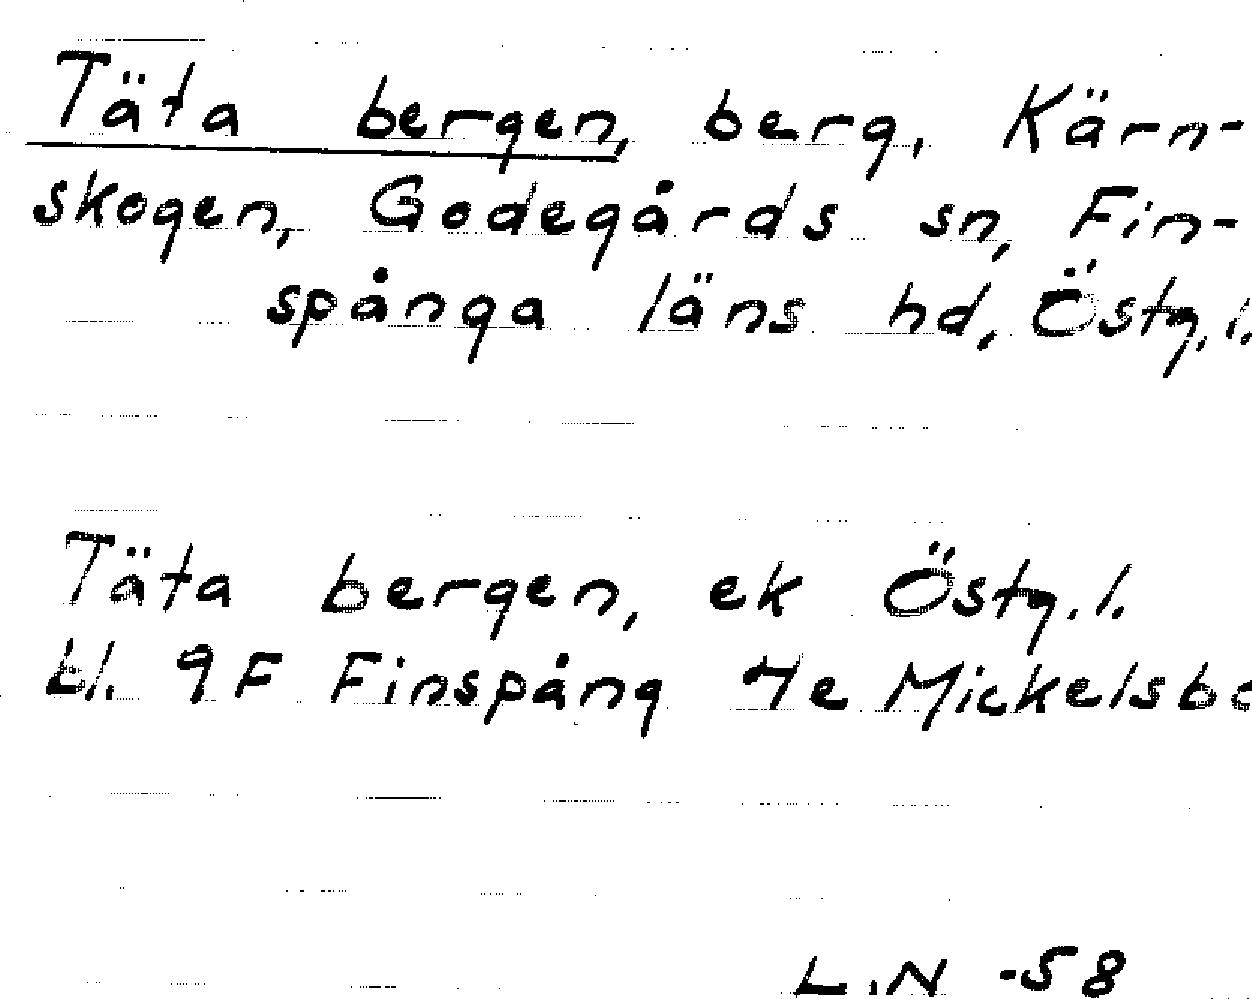 Täta bergen, berg, Kärn-
skogen, Godegårds sn, Fin-
spånga läns hd, Östg.l.
Täta bergen, ek Östg.l.
bl. 9F Finspång 4e Mickelsbo
L.N -58